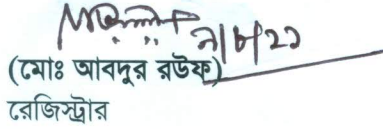 ৯|৮|২১
(মোঃ আবদুর রউফ)
রেজিস্ট্রার